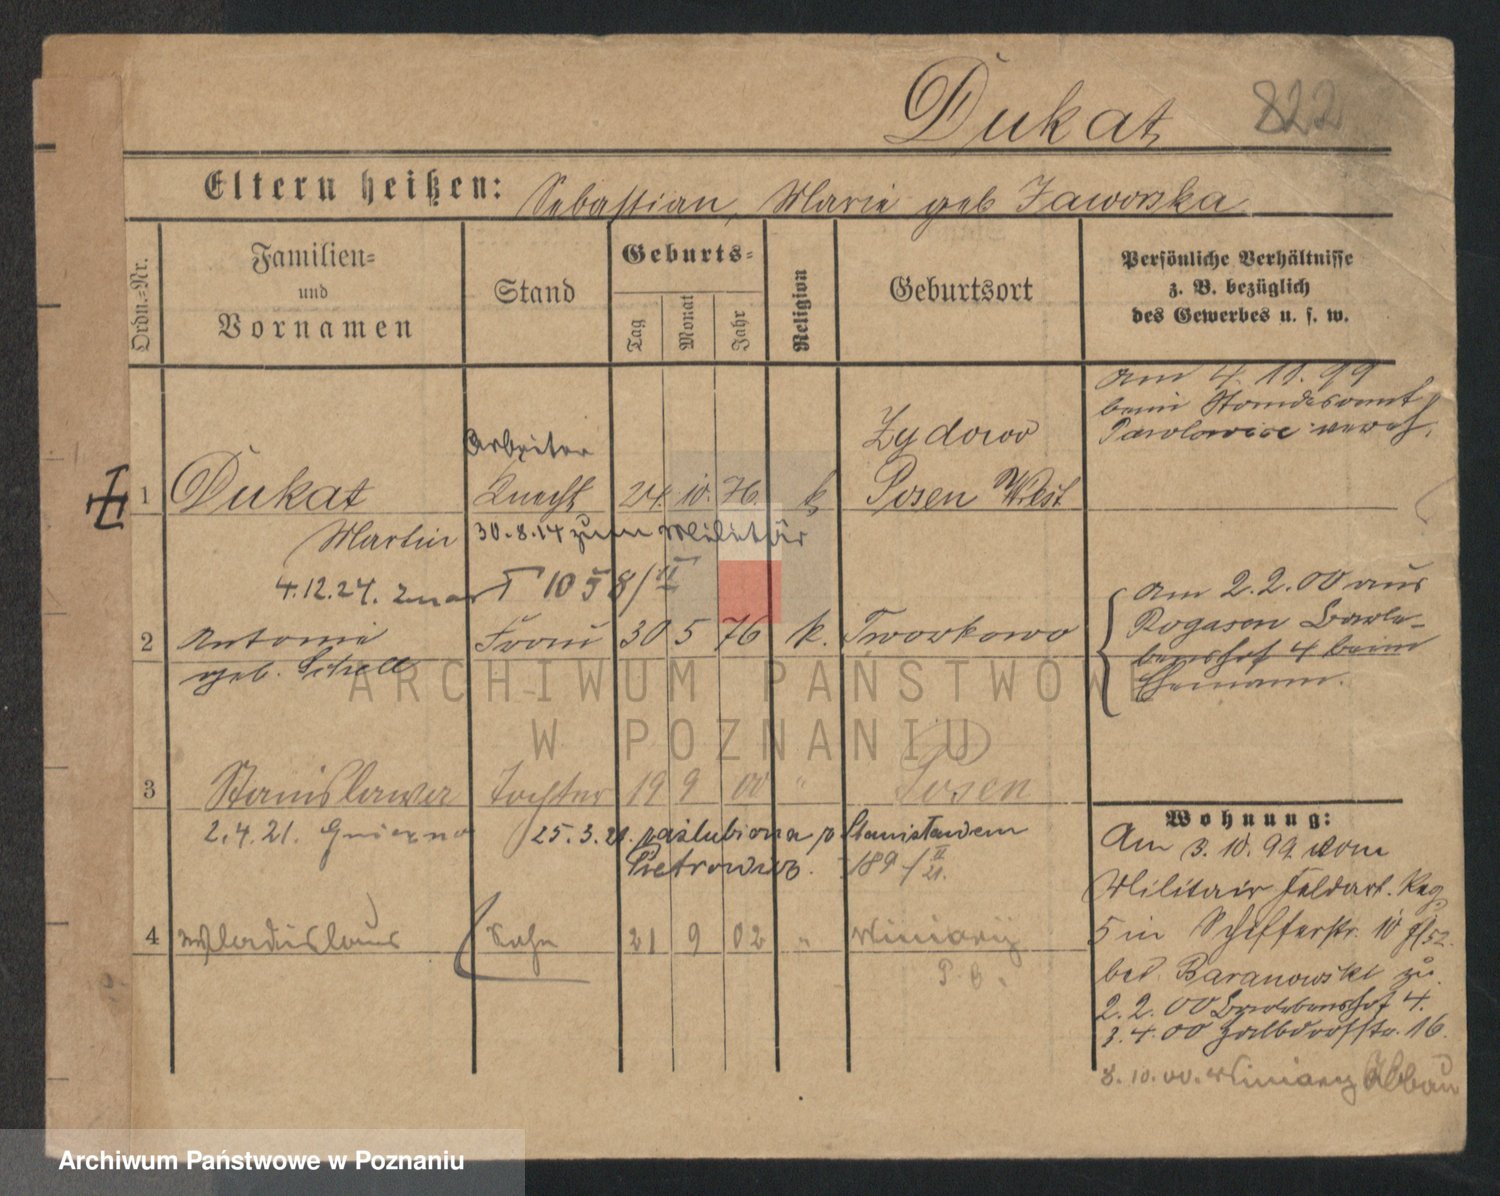 Dukat 822
Eltern heißen: Sebastian, Marie geb Jaworska
Ordn.-Nr.
Familien-
und
Vornamen
Stand
Geburts-
Tag
Monat
Jahr
Religion
Geburtsort
Persönliche Verhältnisse
z. B. bezüglich
des Gewerbes u. s. w.
Am 4. 11. 99
beim Standesamt
Pawlowice
Arbeiter
Zydowo
1 Dukat Knecht 24. 10. 76. k Posen West
Martin 30.8.14 zum Militär
4.12.24. 1058/II
2 Antonie Frau 30 5 76 k. Tworkowo
geb.
Am 2.2.00 aus
Rogasen
4 beim
Ehemann.
ARCHIWUM PAŃSTWOWE
W POZNANIU
3 Stanislawa Tochter 19 9 00 " Posen
2.4.21. Gniezno 25.3.21. paślubiona z Stanisławem
189/II 21.
4 Wladislaus Sohn 21 9 02 " Winiary
P. B.
Wohnung:
Am 3.10.99 vom
Militair Feldart. Reg
5 in Schifferstr. 10
bei Baranowski zu.
2.2.00 4.
3.4.00 Halbdorfstr. 16.
8.10.00. Winiary Abbau
Archiwum Państwowe w Poznaniu